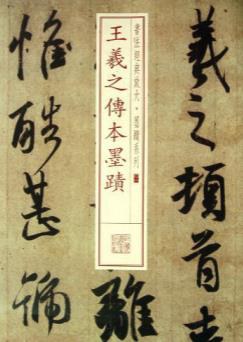 羲之頓首
書法經典放大・墨蹟系列
王羲之傳本墨蹟
離
惟酷甚號